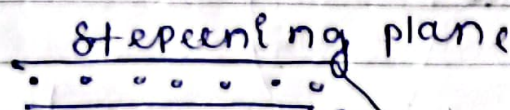 stepeening plane